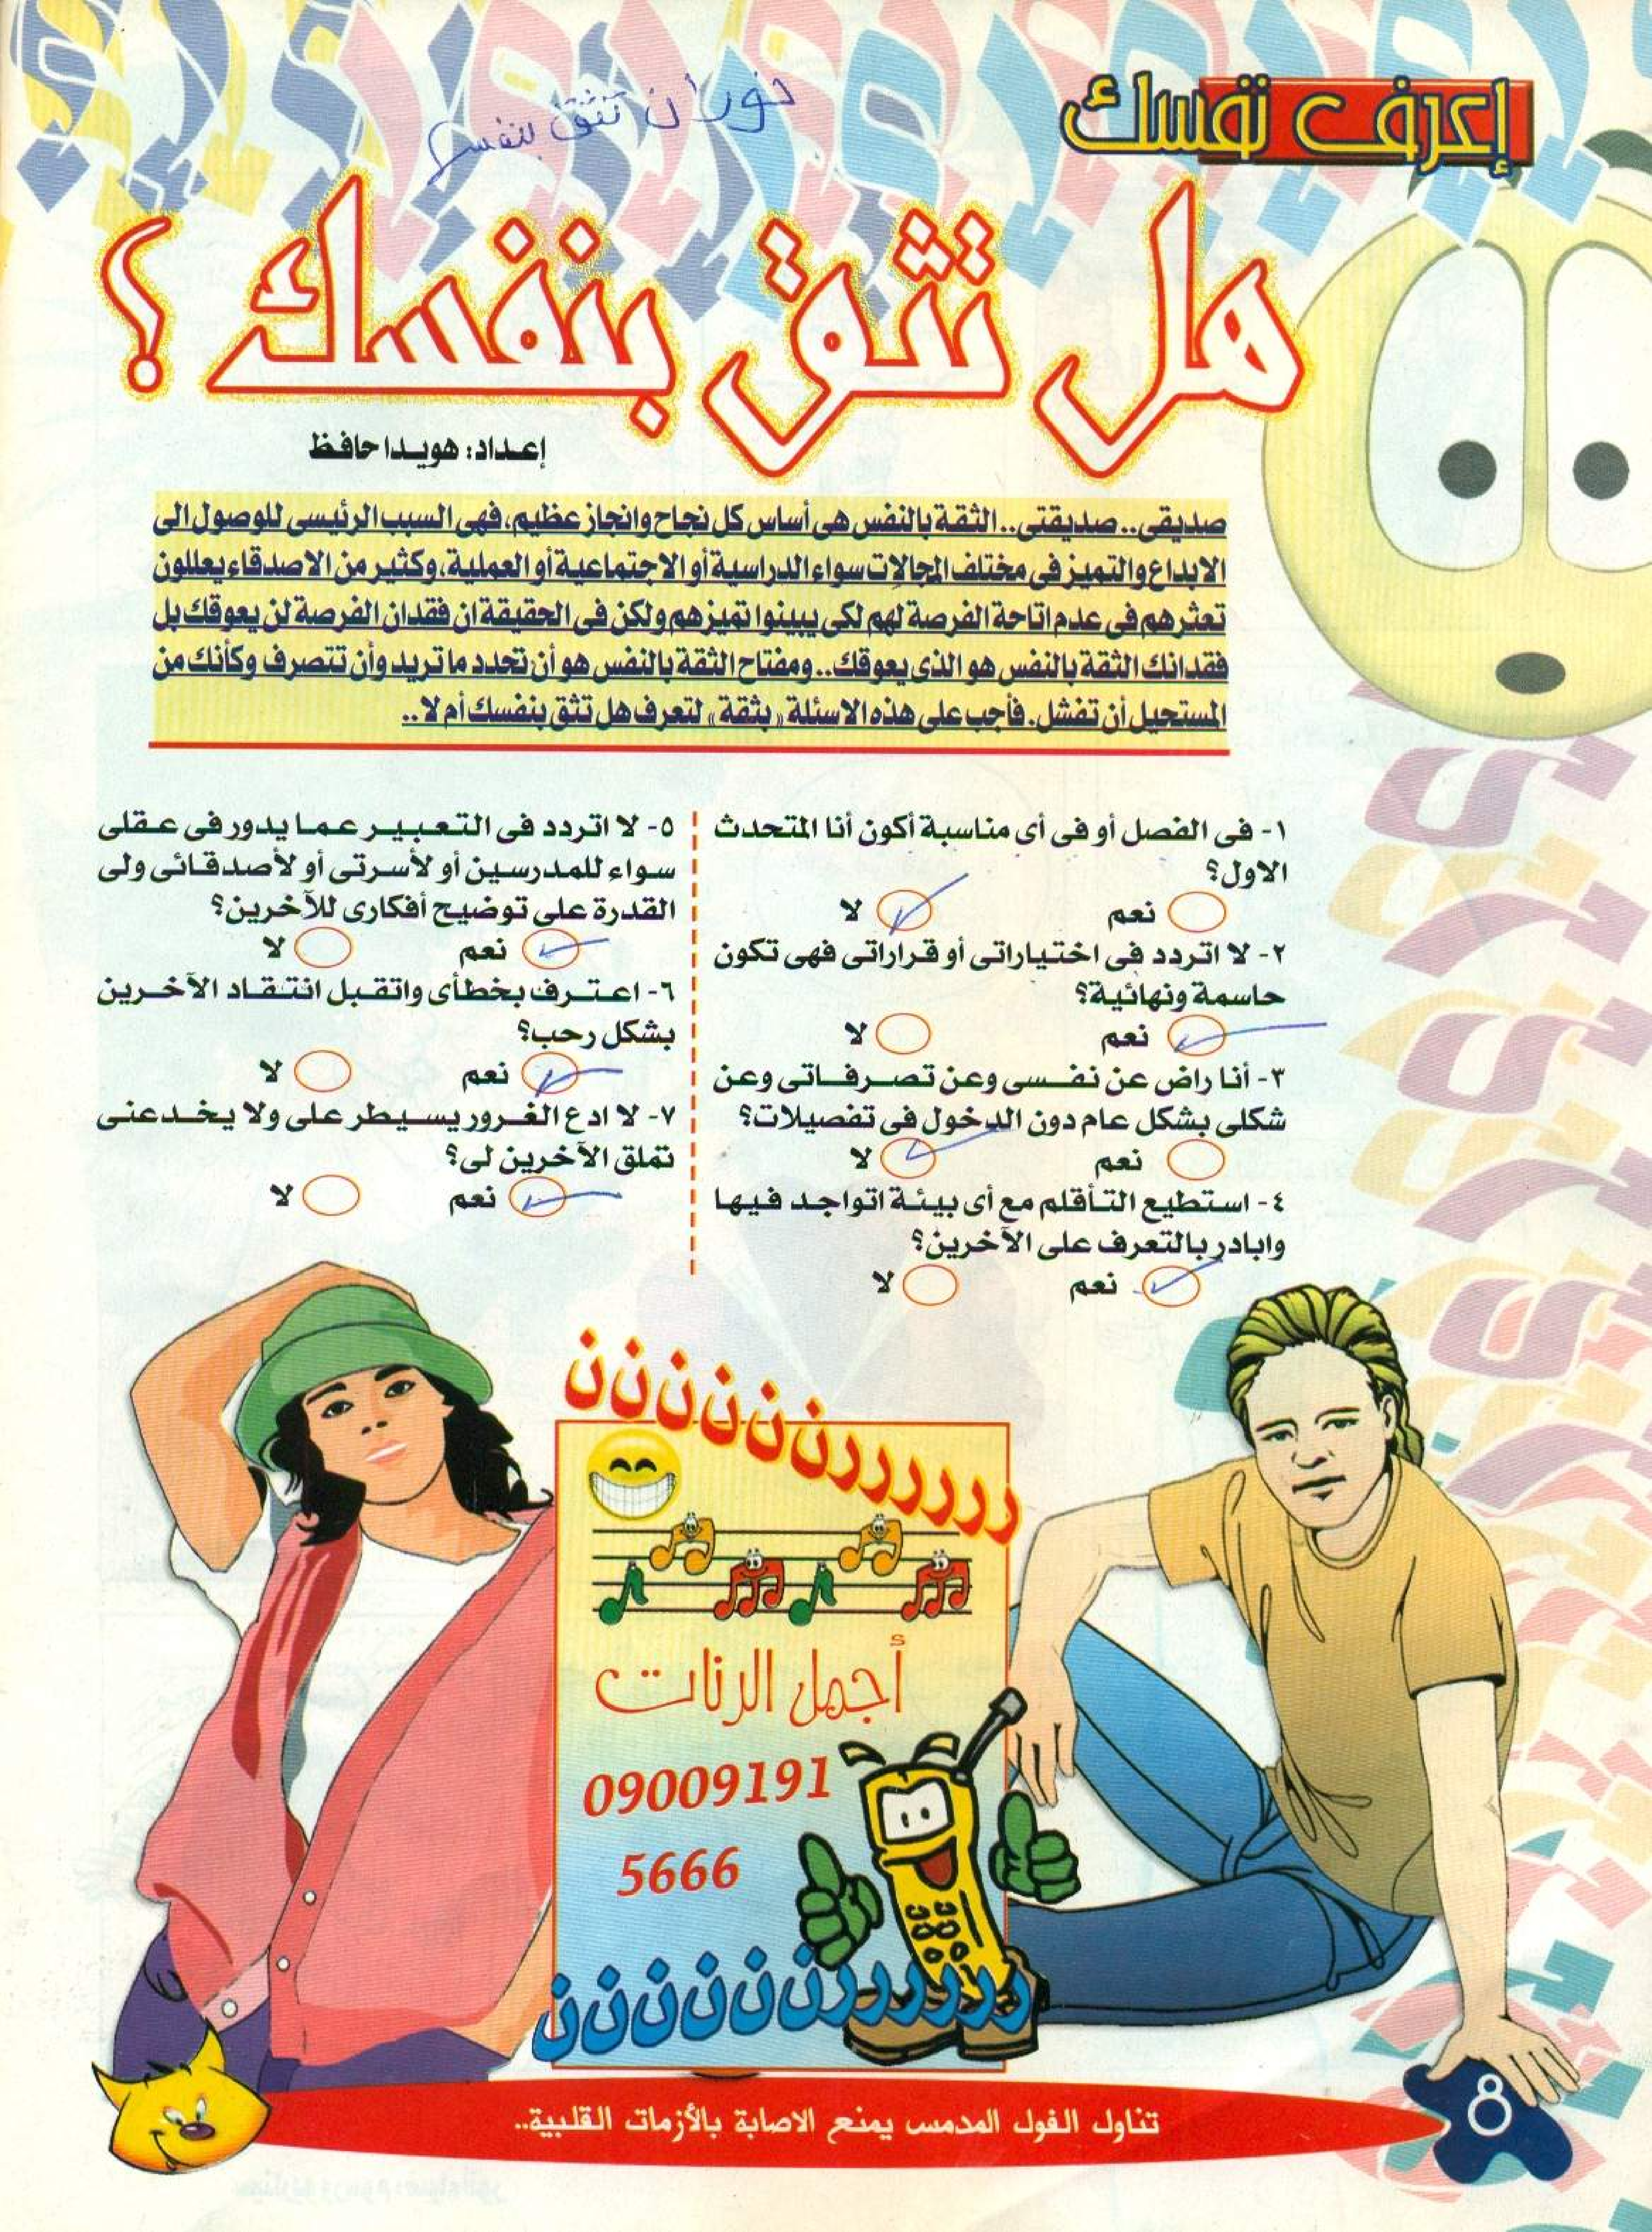 إعرف نفسك
نوران تثق بنفسها
هل تثق بنفسك ؟
إعداد: هويدا حافظ
صديقى.. صديقتى.. الثقة بالنفس هى أساس كل نجاح وانجاز عظيم، فهى السبب الرئيسى للوصول الى
الابداع والتميز فى مختلف المجالات سواء الدراسية أو الاجتماعية أو العملية، وكثير من الاصدقاء يعللون
تعثرهم فى عدم اتاحة الفرصة لهم لكى يبينوا تميزهم ولكن فى الحقيقة ان فقدان الفرصة لن يعوقك بل
فقدانك الثقة بالنفس هو الذى يعوقك.. ومفتاح الثقة بالنفس هو أن تحدد ما تريد وأن تتصرف وكأنك من
المستحيل أن تفشل. فأجب على هذه الاسئلة «بثقة» لتعرف هل تثق بنفسك أم لا..
١- فى الفصل أو فى أى مناسبة أكون أنا المتحدث
الاول؟
نعم لا
٢- لا اتردد فى اختياراتى أو قراراتى فهى تكون
حاسمة ونهائية؟
نعم لا
٣- أنا راض عن نفسى وعن تصرفاتى وعن
شكلى بشكل عام دون الدخول فى تفصيلات؟
نعم لا
٤- استطيع التأقلم مع أى بيئة اتواجد فيها
وابادر بالتعرف على الآخرين؟
نعم لا
٥- لا اتردد فى التعبير عما يدور فى عقلى
سواء للمدرسين أو لأسرتى أو لأصدقائى ولى
القدرة على توضيح أفكارى للآخرين؟
نعم لا
٦- اعترف بخطأى واتقبل انتقاد الآخرين
بشكل رحب؟
نعم لا
٧- لا ادع الغرور يسيطر على ولا يخدعنى
تملق الآخرين لى؟
نعم لا
ررررررنننننن
أجمل الرنات
09009191
5666
ررررررنننننن
تناول الفول المدمس يمنع الاصابة بالأزمات القلبية..
8